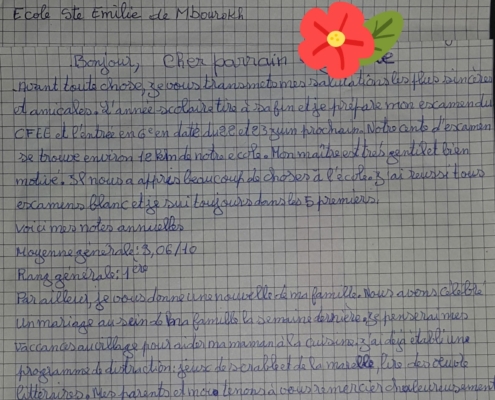 Ecole Ste Emilie de Mbourokh
Bonjour, Cher parrain
Avant toute chose, je vous transmet mes salutations les plus sincères
et amicales. L'année scolaire tire à sa fin et je prépare mon examen du
CFEE et l'entrée en 6e en date du 22 et 23 juin prochain. Notre cente d'examen
se trouve environ 1 km de notre école. Mon maître est très gentil et bien
motivé. Il nous a appres beaucoup de choses à l'école. J'ai reussi tous
examens blanc et je suis toujours dans les 5 premiers.
Voici mes notes annuelles
Moyenne generale: 9,06/10
Rang générale: 1ère
Par ailleur, je vous donne une nouvelle de ma famille. Nous avons célébré
un mariage au sein de ma famille la semaine dernière. Je penserai mes
vaccances au village pour aider ma maman à la cuisine. J'ai déjà établi une
programme de distraction: jeux de scrable et de la marelle, lire des
littéraires. Mes parents et moi tenons à vous remercier chaleureusement